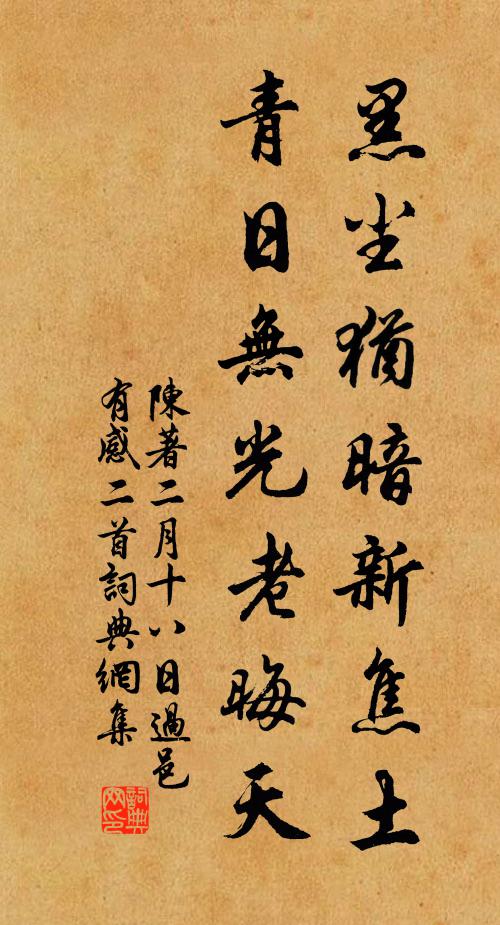 黑尘猶暗新焦土
青日無光老晦天
陳著二月十八日過邑
有感二首詞典網集
詞典
网印